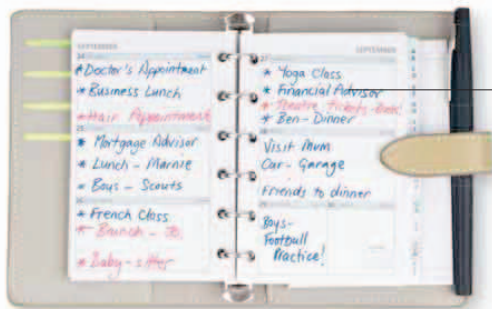 SEPTEMBER
24
* Doctor's Appointment
* Business Lunch
* Hair Appointment
25
* Mortgage Advisor
* Lunch - Marnie
* Boys - Scouts
26
* French Class
* Brunch - Jo
* Baby-sitter
SEPTEMBER
27
* Yoga Class
* Financial Advisor
* Theatre tickets
* Ben - Dinner
28
Visit Mum
Car - Garage
Friends to dinner
Boys-
Football
Practice!